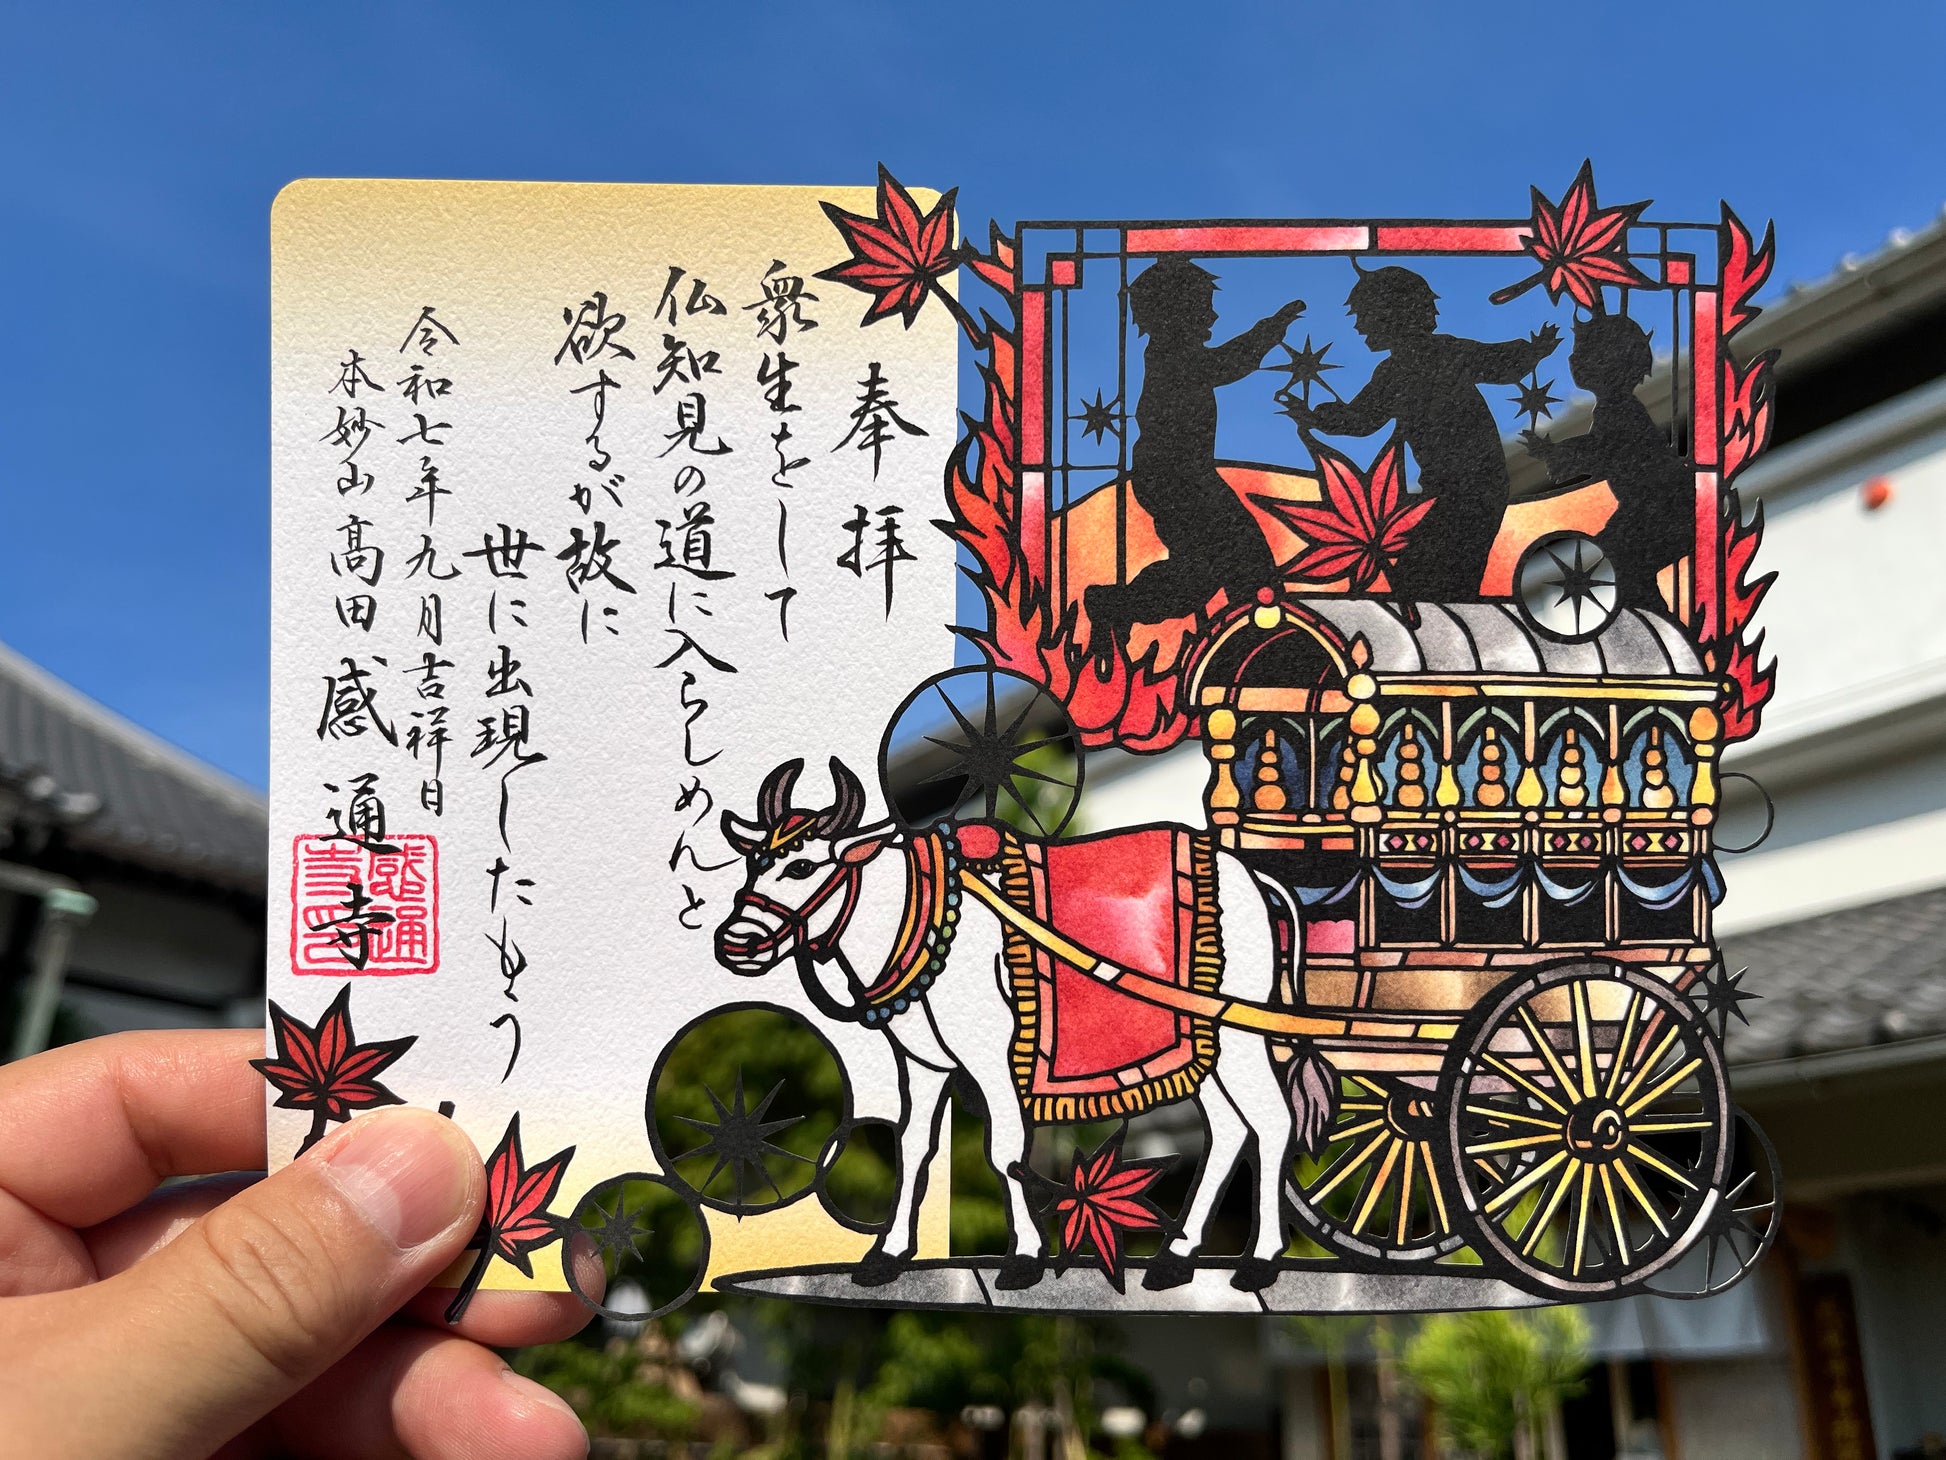 奉拝
衆生をして
仏知見の道に入らしめんと
欲するが故に
世に出現したもう
令和七年九月吉祥日
本妙山髙田感通寺
感通寺印